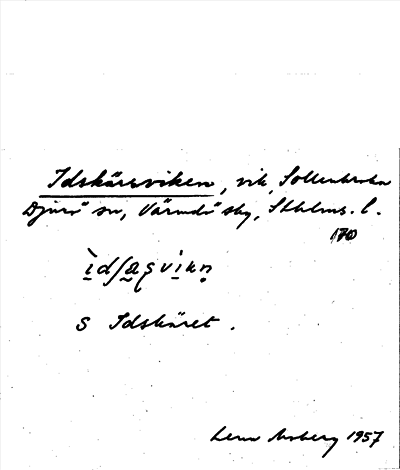 Idskärsviken, vik, Sollenkroka
Djurö sn, Värmdö skg, Sthlms. l.
170
ìdʃæʂvikn̥
S Idskäret.
1957